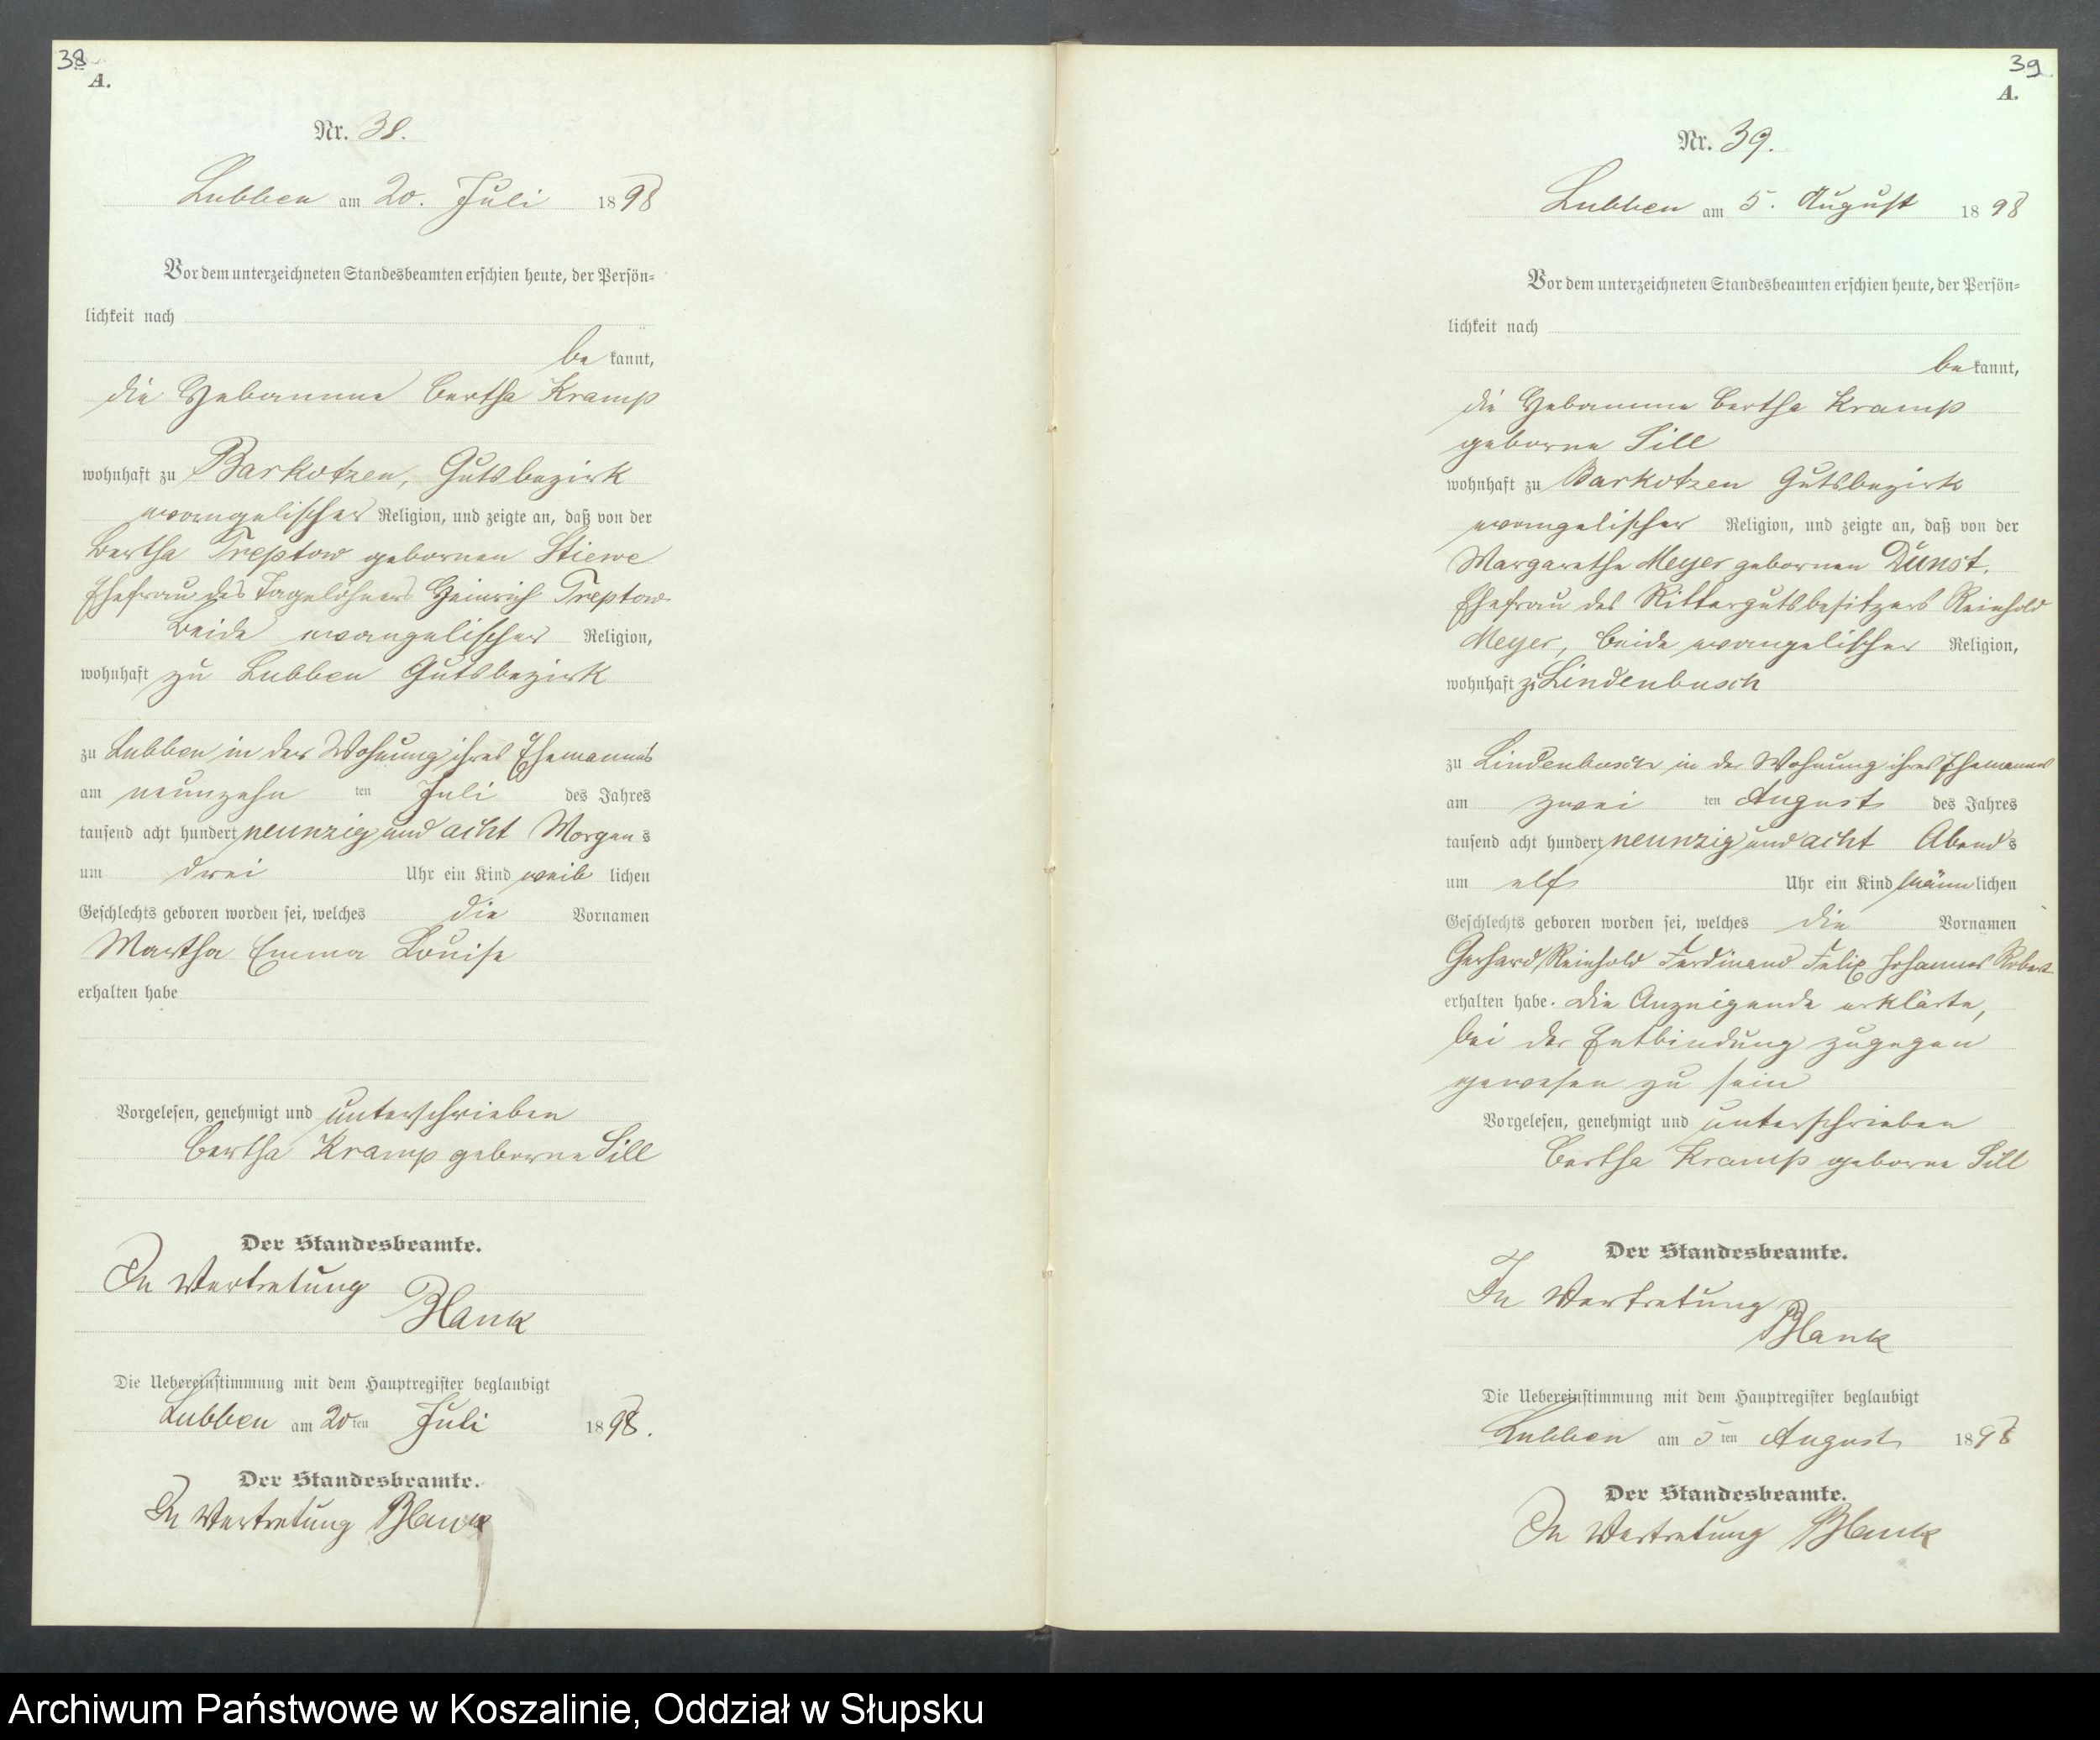 38
A.
Nr. 38.
Lubben am 20. Juli 1898
Vor dem unterzeichneten Standesbeamten erschien heute, der Persön-
lichkeit nach
be kannt,
die Hebamme Bertha Kramp
wohnhaft zu Barkotzen, Gutsbezirk
evangelischer Religion, und zeigte an, daß von der
Bertha Treptow gebornen Stiewe
Ehefrau des Tagelöhners Heinrich Treptow
beide evangelischer Religion,
wohnhaft zu Lubben Gutsbezirk
zu Lubben in der Wohnung ihres Ehemannes
am neunzehn ten Juli des Jahres
tausend acht hundert neunzig und acht Morgens
um drei Uhr ein Kind weiblichen
Geschlechts geboren worden sei, welches die Vornamen
Martha Emma Louise
erhalten habe
Vorgelesen, genehmigt und unterschrieben
Bertha Kramp geborne Sill
Der Standesbeamte.
In Vertretung
Blank
Die Uebereinstimmung mit dem Hauptregister beglaubigt
Lubben am 20ten Juli 1898.
Der Standesbeamte.
In Vertretung Blank
39
A.
Nr. 39.
Lubben am 5. August 1898
Vor dem unterzeichneten Standesbeamten erschien heute, der Persön-
lichkeit nach
be kannt,
die Hebamme Bertha Kramp
geborne Sill
wohnhaft zu Barkotzen Gutsbezirk
evangelischer Religion, und zeigte an, daß von der
Margarethe Meyer gebornen Dunst.
Ehefrau des Rittergutsbesitzers Reinhold
Meyer, beide evangelischer Religion,
wohnhaft zu Lindenbusch
zu Lindenbusch in der Wohnung ihres Ehemannes
am zwei ten August des Jahres
tausend acht hundert neunzig und acht Abends
um elf Uhr ein Kind männlichen
Geschlechts geboren worden sei, welches die Vornamen
Gerhard Reinhold Ferdinand Felix Johannes Robert
erhalten habe. Die Anzeigende erklärte,
bei der Entbindung zugegen
gewesen zu sein
Vorgelesen, genehmigt und unterschrieben
Bertha Kramp geborne Sill
Der Standesbeamte.
In Vertretung
Blank
Die Uebereinstimmung mit dem Hauptregister beglaubigt
Lubben am 5ten August 1898
Der Standesbeamte.
In Vertretung Blank
Archiwum Państwowe w Koszalinie, Oddział w Słupsku